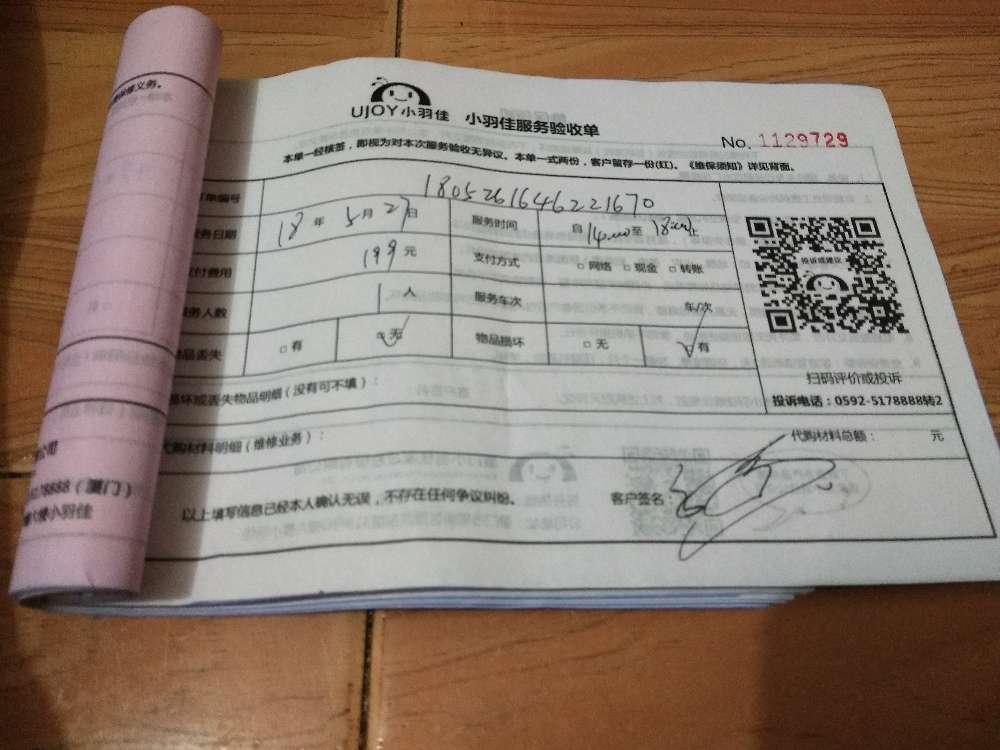 保修义务。
UJOY小羽佳 小羽佳服务验收单
No. 1129729
本单一经核签，即视为对本次服务验收无异议。本单一式两份，客户留存一份(红)。《维保须知》详见背面。
单编号 1805261646221670
务日期 18年5月27日 服务时间 自14:00至18:00止
支付费用 199元 支付方式 □网络 □现金 □转账
务人数 1人 服务车次 车/次
品丢失 □有 □无 物品损坏 □无 □有
投诉或建议
扫码评价或投诉
投诉电话：0592-5178888转2
坏或丢失物品明细（没有可不填）：
代购材料明细（维修业务）： 代购材料总额： 元
以上填写信息已经本人确认无误，不存在任何争议纠纷。 客户签名：
公司
5178888（厦门）
楼小羽佳